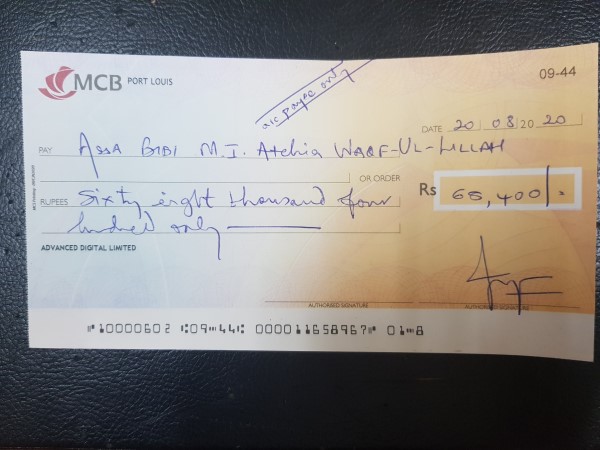 MCB PORT LOUIS
a/c payee only
09-44
DATE 20 08 20 20
PAY Assa BIBI M.I. Atchia WAQF-UL-LILLAH
OR ORDER
Rs 68,400/-
RUPEES Sixty eight thousand four
hundred only
ADVANCED DIGITAL LIMITED
AUTHORISED SIGNATURE
AUTHORISED SIGNATURE
⑈10000602 ⑆09⑉44⑆ 000011658967⑈ 01⑉8